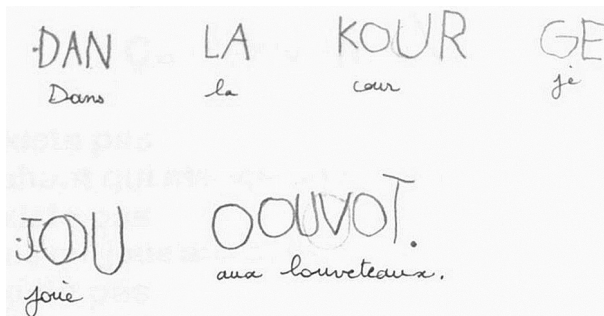 DAN LA KOUR GE
Dans la cour je
JOU OOUVOT.
joue aux louveteaux.